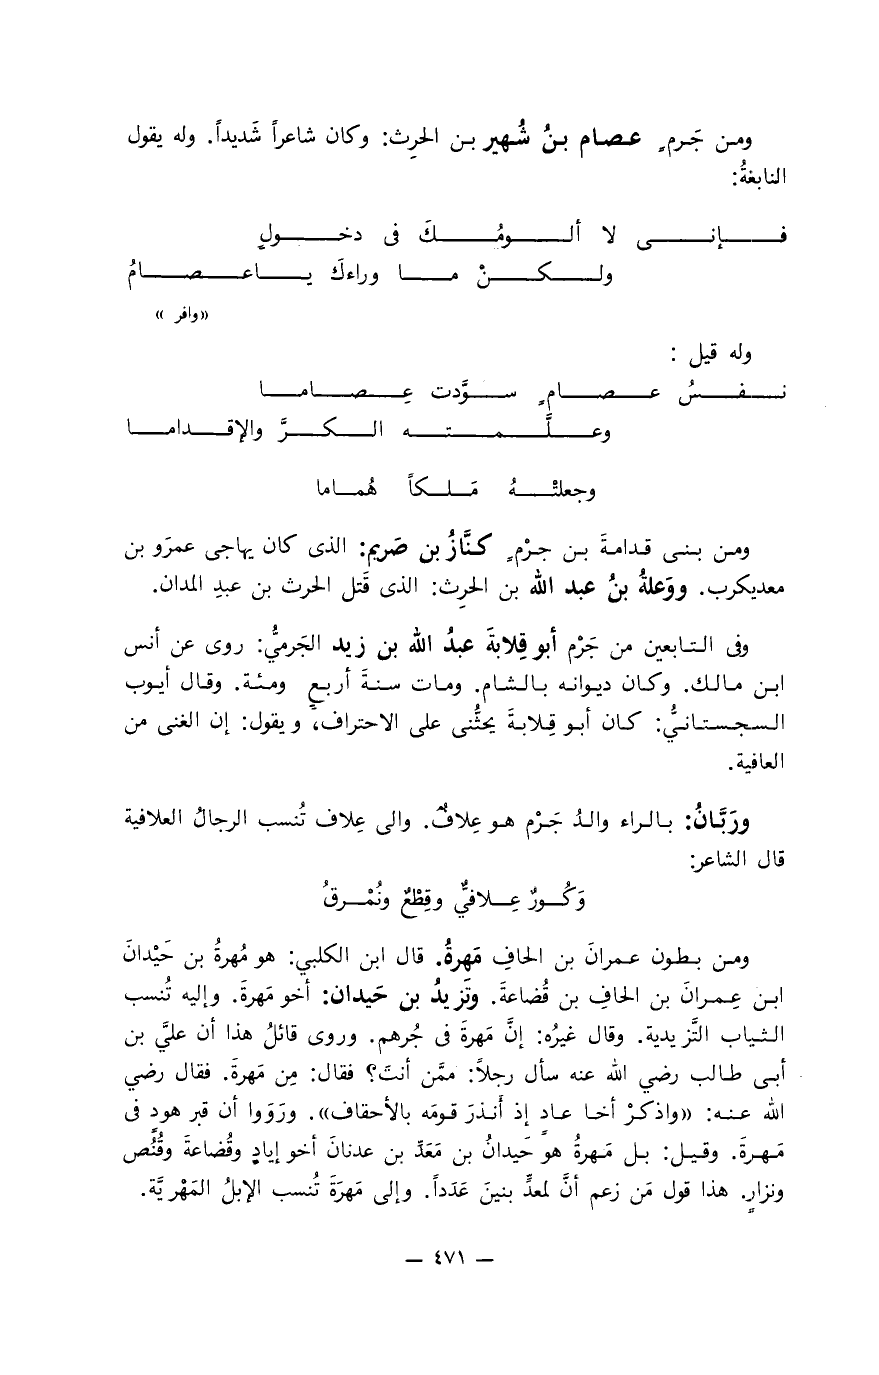 ومن جَرمٍ عصام بنُ شُهير بن الحرِث: وكان شاعراً شَديداً. وله يقول
النابغةُ:
فإنى لا ألومُكَ فى دخولٍ
ولكنْ ما وراءكَ ياعصامُ
«وافر»
وله قيل :
نفسُ عصامٍ سوَّدت عِصاما
وعلَّمته الكرَّ والإقداما
وجعلتْهُ مَلكاً هُماما
ومن بنى قدامةَ بن جرْمٍ كنَّازُ بن صَريم: الذى كان يهاجى عمرَو بن
معديكرب. ووَعلةُ بنُ عبد الله بن الحرِث: الذى قَتل الحرث بن عبدِ المدان.
وفى التابعين من جَرْم أبو قِلابةَ عبدُ الله بن زيد الجَرميُّ: روى عن أنس
ابن مالك. وكان ديوانه بالشام. ومات سنةَ أربعٍ ومئة. وقال أيوب
السجستانيُّ: كان أبو قِلابةَ يحثُّنى على الاحتراف، ويقول: إن الغنى من
العافية.
ورَبَّانُ: بالراء والدُ جَرْم هو عِلافٌ. والى عِلاف تُنسب الرحالُ العلافية
قال الشاعر:
وَكُورٌ عِلافيٌّ وقِطْعٌ ونُمْرقُ
ومن بطون عمرانَ بن الحافِ مَهرةُ. قال ابن الكلبي: هو مُهرةُ بن حَيْدانَ
ابن عِمرانَ بن الحافِ بن قُضاعةَ. وتَزيدُ بن حَيدان: أخو مَهرةَ. وإليه تُنسب
الثياب التَّزيدية. وقال غيرُه: إنَّ مَهرةَ فى جُرهم. وروى قائلُ هذا أن عليَّ بن
أبى طالب رضي الله عنه سأل رجلاً: ممَّن أنتَ؟ فقال: مِن مَهرةَ. فقال رضي
الله عنه: «واذكرْ أخا عادٍ إذ أَنذرَ قومَه بالأحقاف». ورَوَوا أن قبر هودٍ فى
مَهرةَ. وقيل: بل مَهرةُ هو حَيدانُ بن مَعَدِّ بن عدنانَ أخو إيادٍ وقُضاعةَ وقُنُص
ونزارٍ. هذا قول مَن زعم أنَّ لمعدٍّ بنينَ عَدَداً. وإلى مَهرَةَ تُنسب الإبلُ المَهْريَّة.
— ٤٧١ —